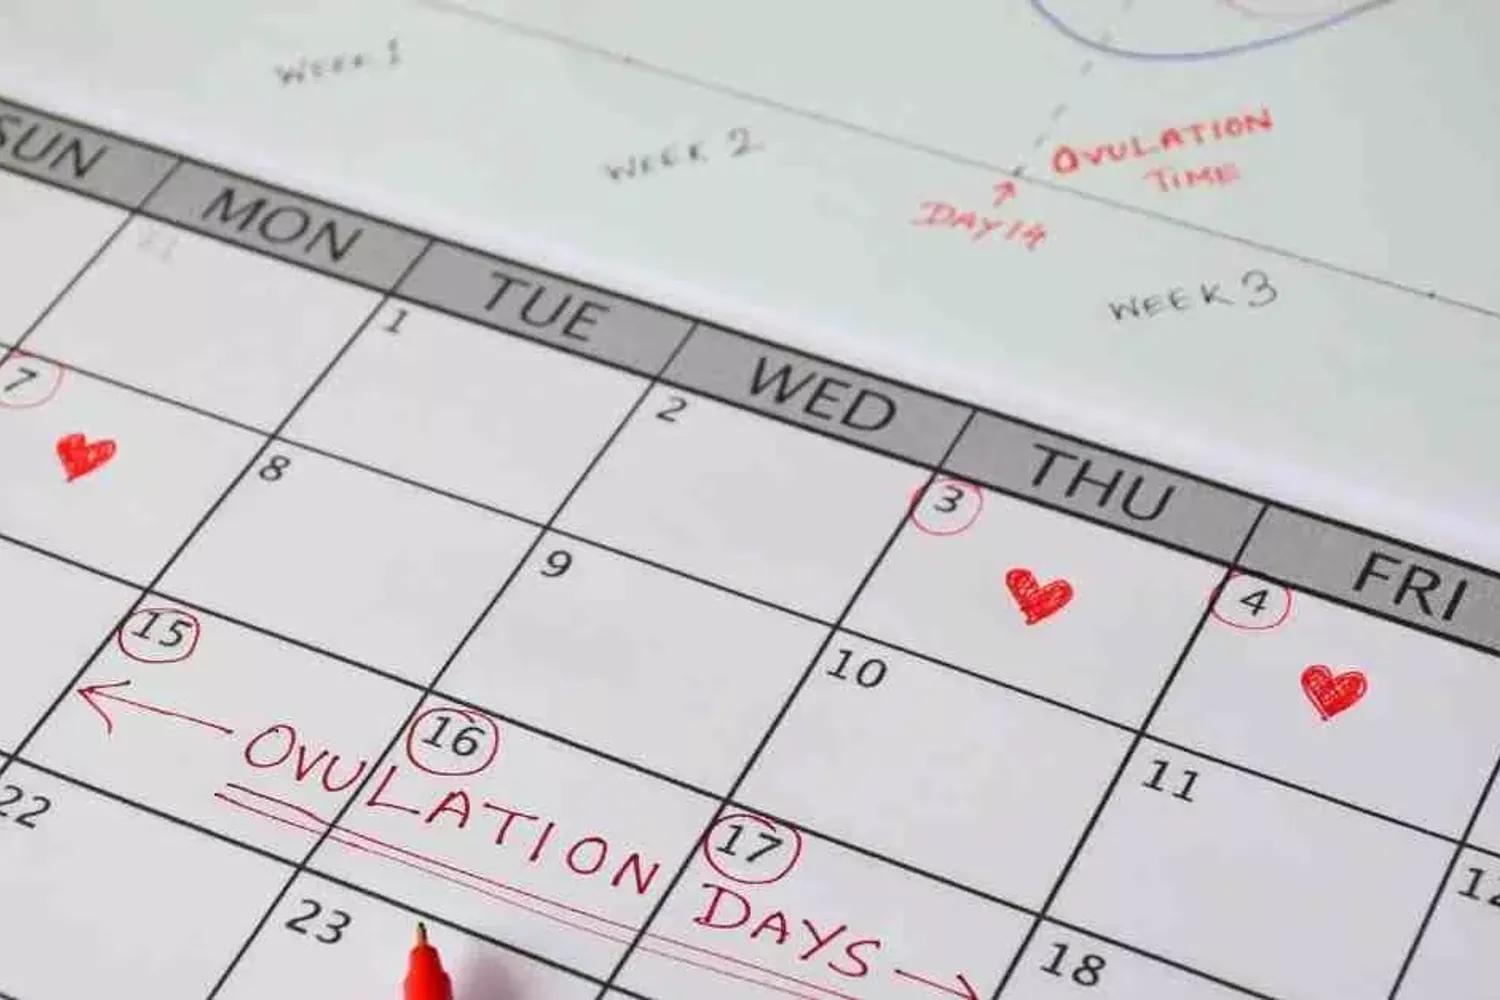 WEEK 1
WEEK 2
OVULATION
TIME
DAY 14
WEEK 3
SUN MON TUE WED THU FRI
1 2 3 4
7 8 9 10 11 12
15 16 17 18
OVULATION DAYS
22 23